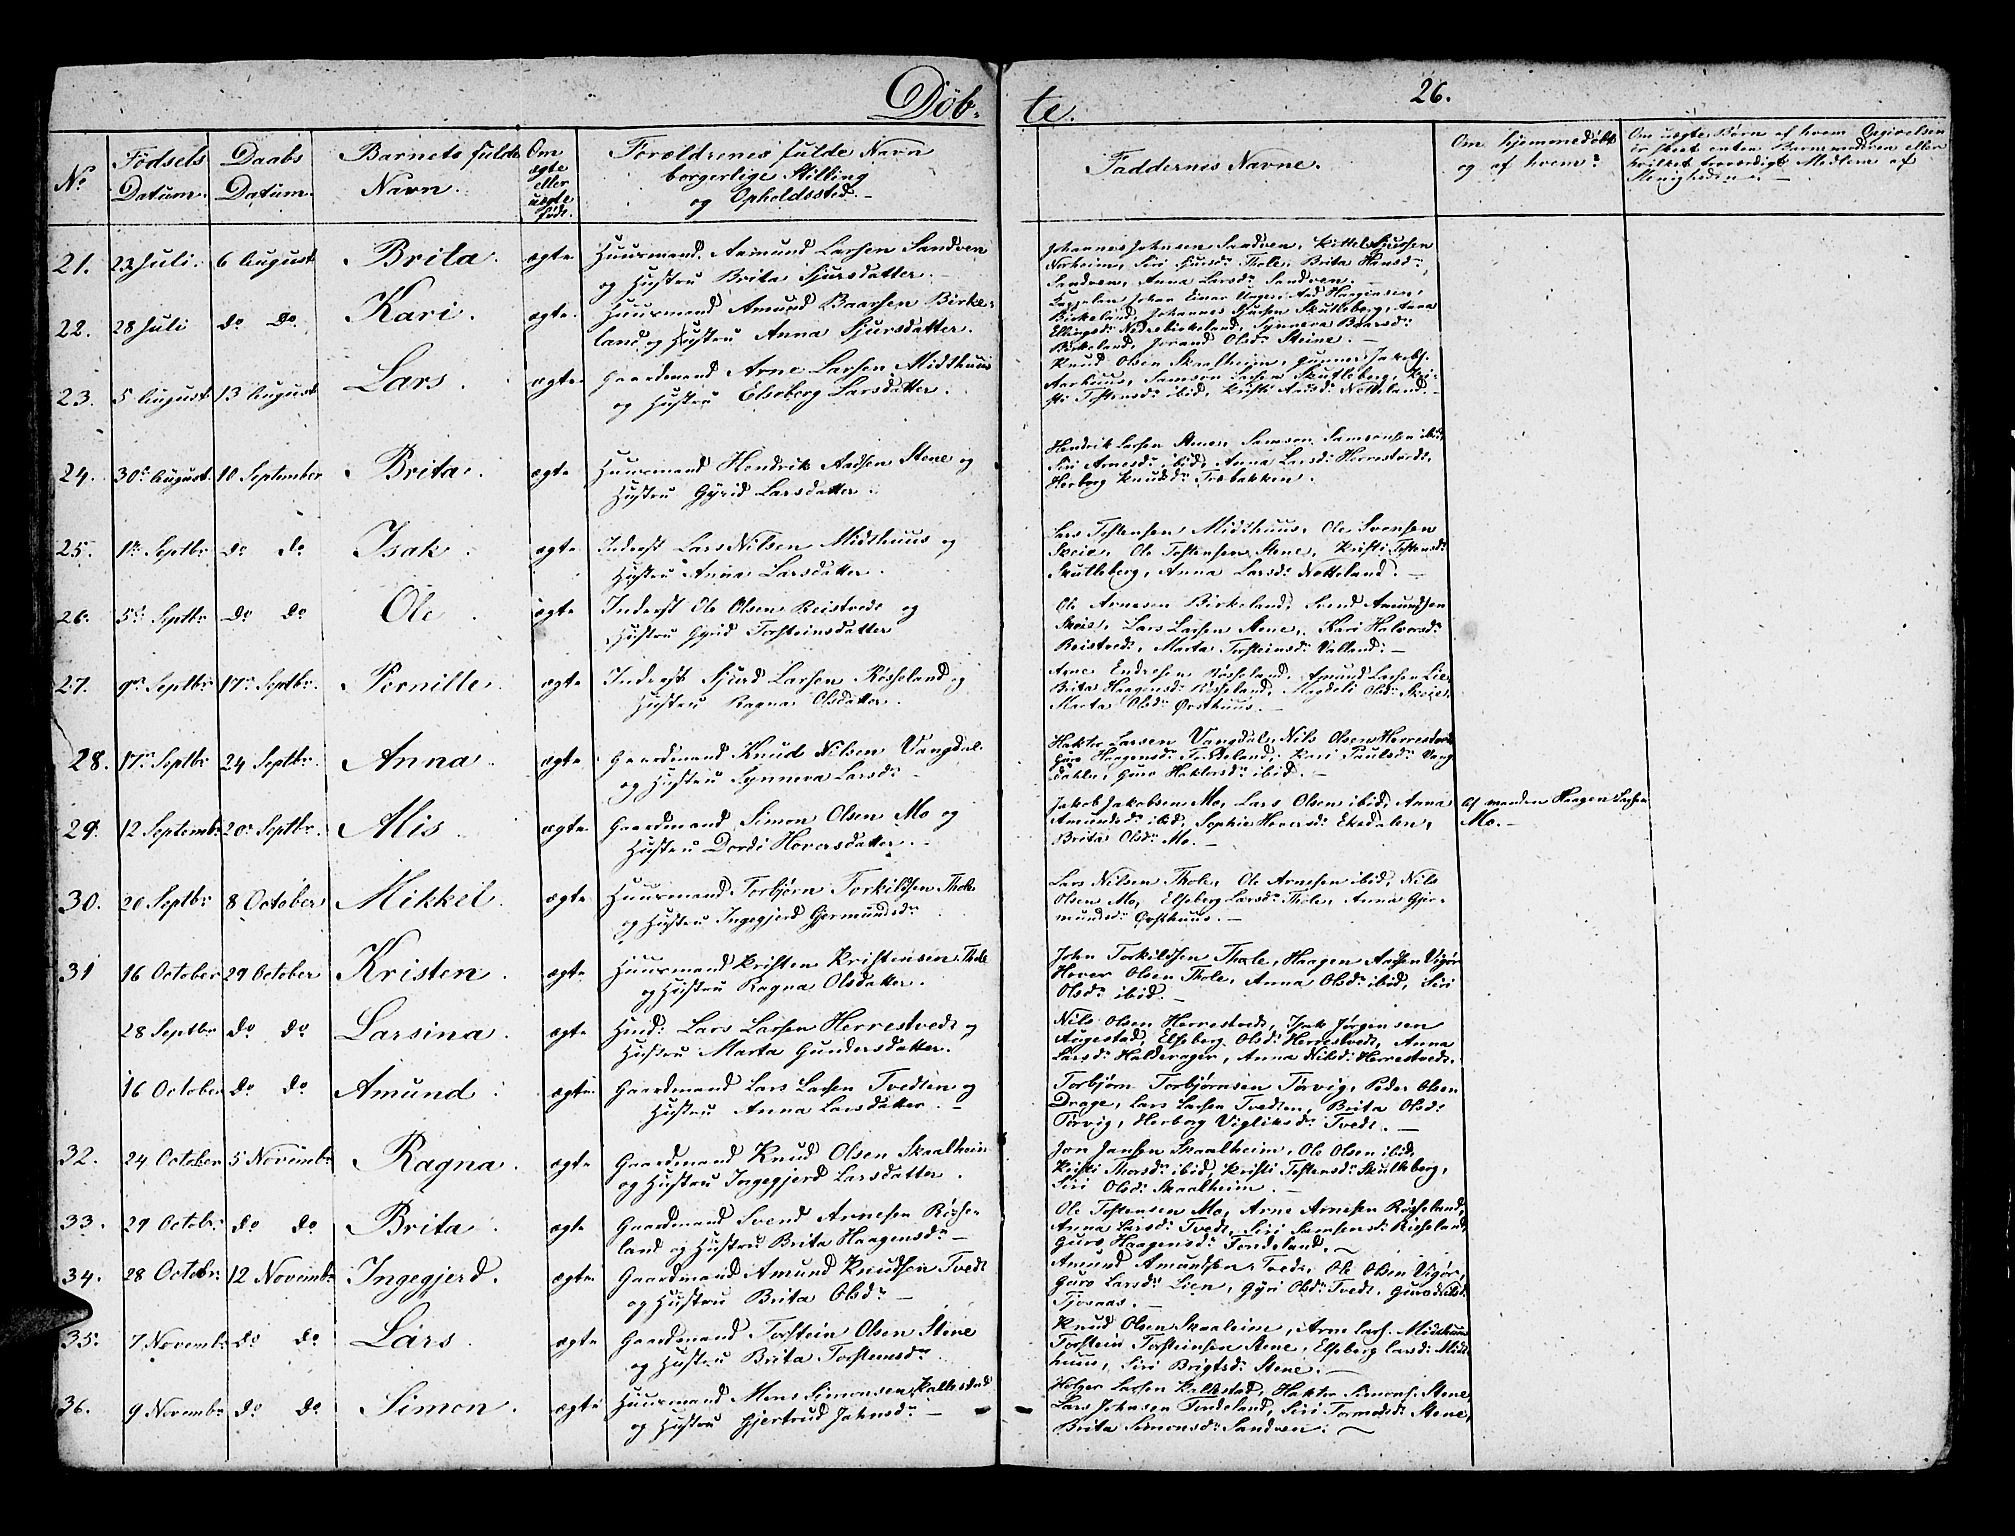 Döb-
te.
26.
No
Födsels
Datum.
Daabs
Datum.
Barnets fulde
Navn.
Om
ægte
eller
uægte
født.
Forældrenes fulde Navn
borgerlige Stilling
og Opholdssted.
Faddernes Navne.
Om hjemmedöbt
og af hvem?
Om uægte Børn af hvem Opgivelsen
er skeet enten Barnemoderen eller
hvilket troværdigt Medlem af
Menigheden.
21. 23 Juli. 6 August Brita. ægte Huusmand Aamund Larsen Sandven
og Hustru Brita Sjursdatter.
Johannes Johnsen Sandven, Kittel Sjursen
Norheim, Siri Sjursdr Thole, Brita Hansdr
Sandven, Anna Larsdr Sandven.
22. 28 Juli do do Kari. ægte Huusmand Amund Baarsen Birke-
land og Hustru Anna Sjursdatter.
Birkeland, Johannes Sjursen Skutleberg, Anna
Ellingsdr Nedrebirkeland, Synneva Baarsdr
Birkeland, Jorand Olsdr Steine.
23. 5 August 13 August Lars. ægte Gaardmand Arne Larsen Midthuus
og Hustru Elseberg Larsdatter.
Knud Olsen Skaalheim, Gunner Jakobs.
Aarhuus, Samson Larsen Skutleberg, Kri-
sti Tostensdr ibid, Kristi Aadsdr Netteland.
24. 30 August. 10 September Brita. ægte Huusmand Hendrik Aadsen Stene og
Hustru Gyrid Larsdatter.
Hendrik Larsen Stene, Samson Samsonsen ibid,
Siri Arnesdr ibid, Anna Larsdr Herrestvedt,
Herborg Knudsdr Træbakken.
25. 1 Septbr do do Isak. ægte Inderst Lars Nilsen Midthuus og
Hustru Anna Larsdatter.
Lars Tostensen Midthuus, Ole Svensen
Skeie, Ole Tostensen Stene, Kristi Tostensdr
Skutleberg, Anna Larsdr Netteland.
26. 5 Septbr do do Ole. ægte Inderst Ole Olsen Reistvedt og
Hustru Gyrid Torsteinsdatter
Ole Arnesen Birkeland, Svend Amundsen
Skeie, Lars Larsen Stene, Kari Halvorsdr
Reistvedt, Marta Torsteinsdr Valland.
27. 9 Septbr 17 Septbr. Pernille. ægte Inderst Sjurd Larsen Røsseland og
Hustru Ragna Olsdatter.
Arne Endresen Røsseland, Amund Larsen Lie
Brita Haagensdr Røsseland, Magdeli Olsdr Skeie,
Marta Olsdr Ørsthuus.
28. 17 Septbr 24 Septbr. Anna. ægte Gaardmand Knud Nilsen Vangdal
og Hustru Synneva Larsdr
Haktor Larsen Vangdal, Nils Olsen Herrestvedt
Guro Haagensdr Tondeland, Kari Paulsdr Vang
dahle, Guro Haktorsdr ibid.
29. 12 Septembr 20 Septbr. Alis ægte Gaardmand Simon Olsen Mo og
Hustru Dordi Hoversdatter.
Jakob Jakobsen Mo, Lars Olsen ibid, Anna
Amundsdr ibid, Sophie Hoversdr Ekedalen,
Brita Olsdr Mo.
Af manden Haagen Larsen
Mo.
30. 20 Septbr 8 October Mikkel. ægte Huusmand Torbjörn Torkildsen Thole
og Hustru Ingegjerd Gjermundsdr
Lars Nilsen Thole, Ole Arnesen ibid, Nils
Olsen Mo, Elseberg Larsdr Thole, Anna Gjer-
mundsdr Ørsthuus.
31 16 October 29 October Kristen. ægte Huusmand Kristen Kristensen Thole
og Hustru Ragna Olsdatter.
John Torkildsen Thole, Haagen Aadsen Vigør
Hover Olsen Thole, Anna Olsdr ibid, Siri
Olsdr ibid.
28 Septbr do do Larsina. ægte Huusmd: Lars Larsen Herrestvedt og
Hustru Marta Gundersdatter.
Nils Olsen Herrestvedt, Isak Jørgensen
Augestad, Elseberg Olsdr Herrestvedt, Anna
Larsdr Halderager, Anna Nilsdr Herrestvedt.
16 October do do Amund. ægte Gaardmand Lars Larsen Tvedten og
Hustru Anna Larsdatter.
Torbjörn Torbjörnsen Törvig, Peder Olsen
Drage, Lars Larsen Tvedten, Brita Olsdr
Törvig, Herborg Vigliksdr Tvedt.
32. 24 October 5 Novembr Ragna. ægte Gaardmand Knud Olsen Skaalheim
og Hustru Ingegjerd Larsdatter.
Jon Jansen Skaalheim, Ole Olsen ibid,
Kristi Thorsdr ibid, Kristi Tostensdr Skutleberg,
Siri Olsdr Skaalheim.
33. 29 Octobr do do Brita. ægte Gaardmand Svend Arnesen Røsse-
land og Hustru Brita Haagensdr
Ole Tostensen Mo, Arne Arnesen Røsseland,
Anna Larsdr Tvedt, Siri Samsonsdr Røsseland,
Guro Haagensdr Tondeland.
34. 28 Octobr 12 Novembr Ingegjerd. ægte Gaardmand Amund Knudsen Tvedt
og Hustru Brita Olsdr
Amund Amundsen Tvedt, Ole Olsen Vigør,
Guro Larsdr Lien, Gyri Olsdr Tvedt, Guro Nilsdr
Tjosaas.
35. 7 Novembr do do Lars. ægte Gaardmand Torstein Olsen Stene
og Hustru Brita Torstensdr
Knud Olsen Skaalheim, Arne Lars. Midthuus
Torstein Torsteinsen Stene, Elseberg Larsdr Midt
huus, Siri Brigtsdr Stene.
36. 9 Novembr do do Simon. ægte Huusmand Mons Simonsen Kallestad
og Hustru Gjertrud Johnsdr
Holger Larsen Kallestad, Haktor Simons. Stene,
Lars Johnsen Tondeland, Siri Tormodsdr Stene,
Brita Simonsdr Sandven.